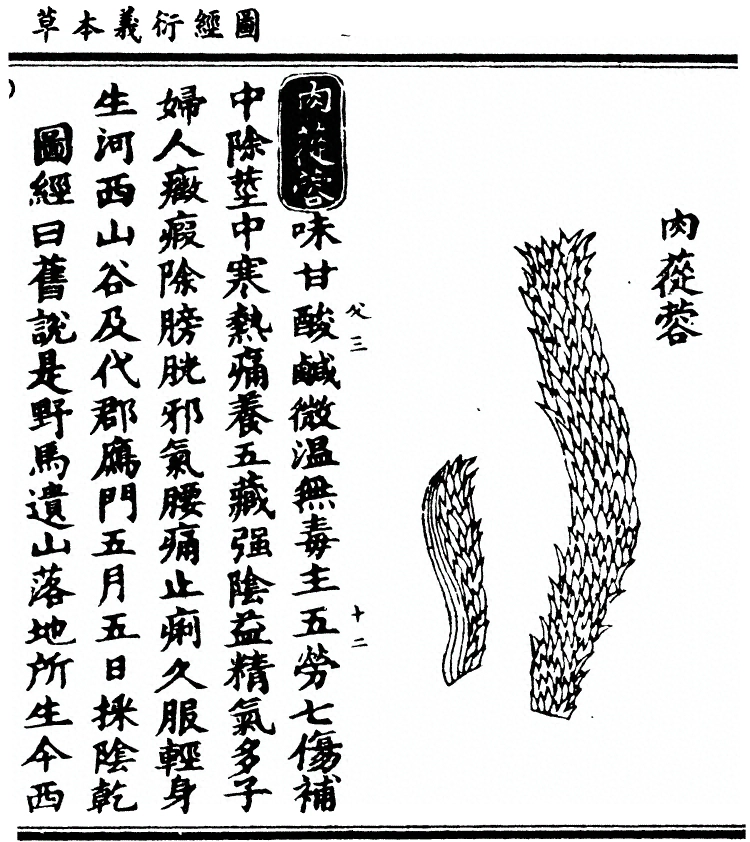 圖經衍義本草
肉蓯蓉
父三
十二
肉蓯蓉味甘酸鹹微温無毒主五勞七傷補
中除莖中寒熱痛養五藏强陰益精氣多子
婦人癥瘕除膀胱邪氣腰痛止痢久服輕身
生河西山谷及代郡鴈門五月五日採陰乾
圖經曰舊説是野馬遺山落地所生今西